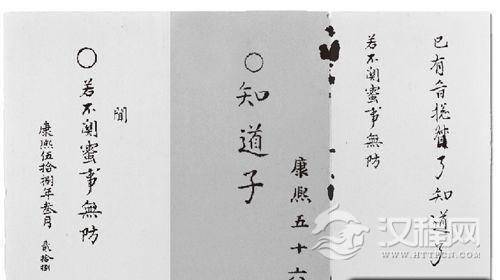 已有旨了知道了
若不関蜜事無防
康熙五十六
○知道了
聞
○若不関蜜事無防
康熙伍拾捌年叁月 貳拾捌
汉程网
HTTPCN.COM